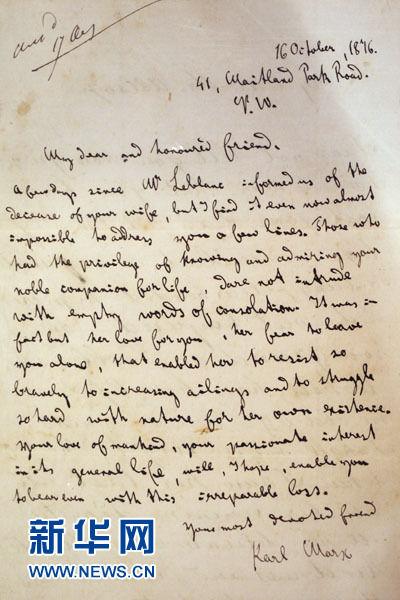 Ansd
17 Oct
16 October, 1876.
41, Maitland Park Road.
N. W.
My dear and honour'd friend.
A few days since Mr Leblanc informed us of the
decease of your wife, but I find it even now almost
impossible to address you a few lines. Those who
had the privilege of knowing and admiring your
noble companion for life, dare not intrude
with empty words of consolation. It was in
fact but her love for you, her fear to leave
you alone, that enabled her to resist so
bravely to increasing ailings and to struggle
so hard with nature for her own existence.
Your love of mankind, your passionate interest
in its general life, will, I hope, enable you
to bear even with this irreparable loss.
Your most devoted friend
Karl Marx
新华网
WWW.NEWS.CN